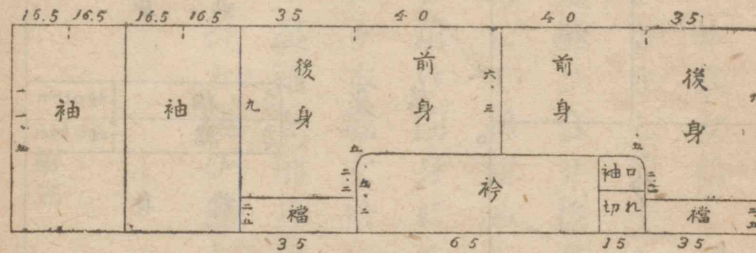 16.5 16.5 16.5 16.5 35 40 40 35
袖
袖
後身
前身
前身
後身
一一・五
九
六・三
九
五
五
二・二
五・二
二・五
襠
衿
袖口
切れ
襠
35 65 15 35